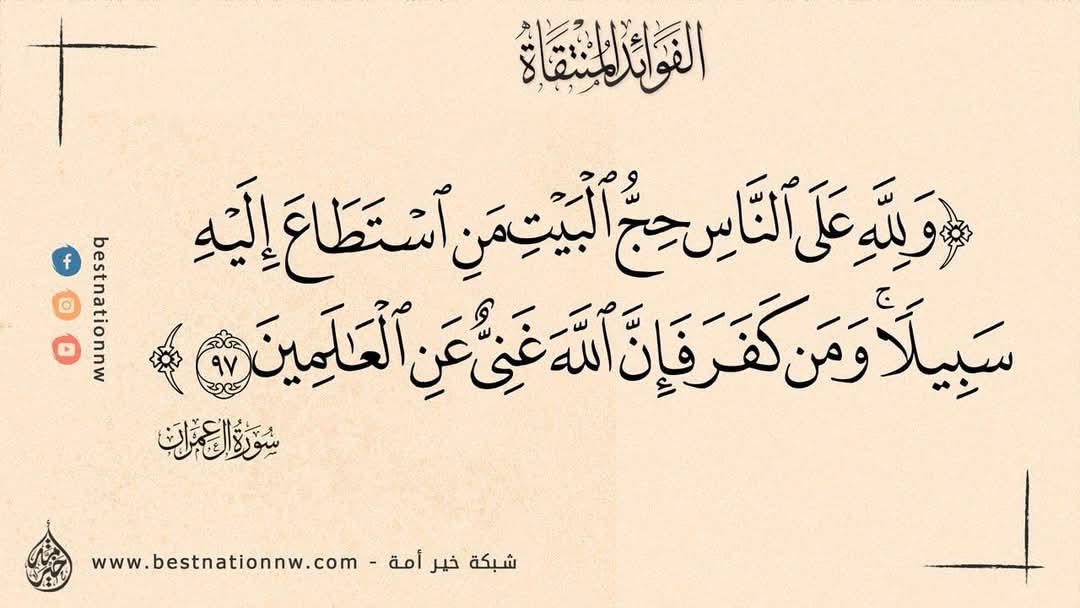 الفوائد المنتقاة
﴿وَلِلَّهِ عَلَى ٱلنَّاسِ حِجُّ ٱلْبَيْتِ مَنِ ٱسْتَطَاعَ إِلَيْهِ
سَبِيلًاۚ وَمَن كَفَرَ فَإِنَّ ٱللَّهَ غَنِىٌّ عَنِ ٱلْعَـٰلَمِينَ ٩٧﴾
سُورَةُ آل عِمْرَان
bestnationnw
خير أمة
www.bestnationnw.com - شبكة خير أمة